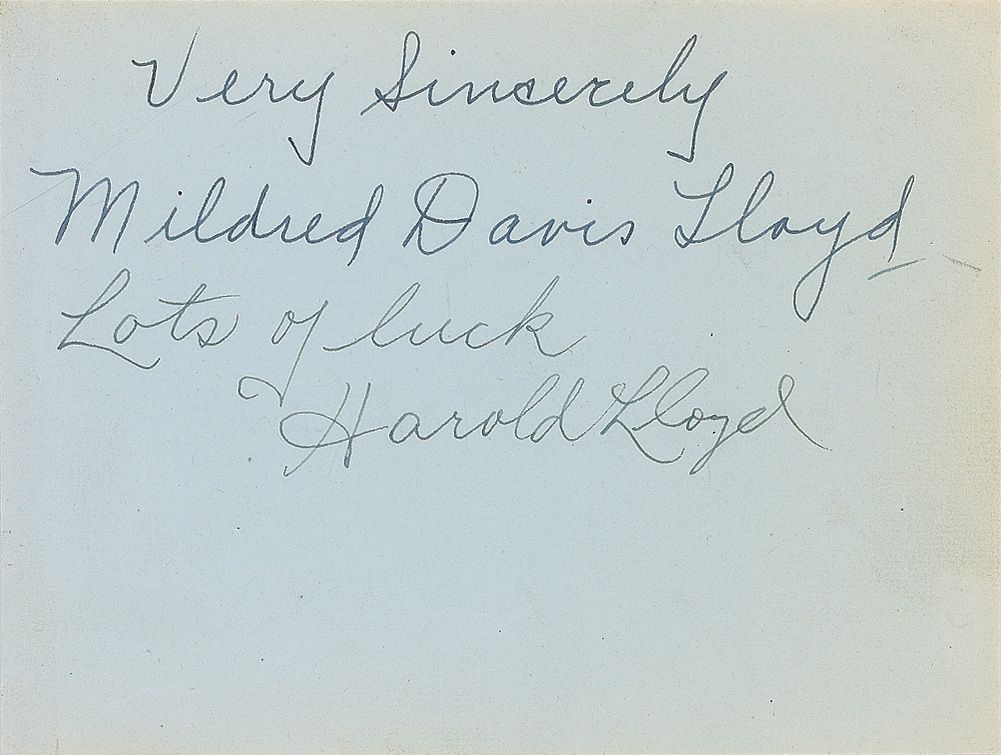 Very Sincerely
Mildred Davis Lloyd
Lots of luck
Harold Lloyd